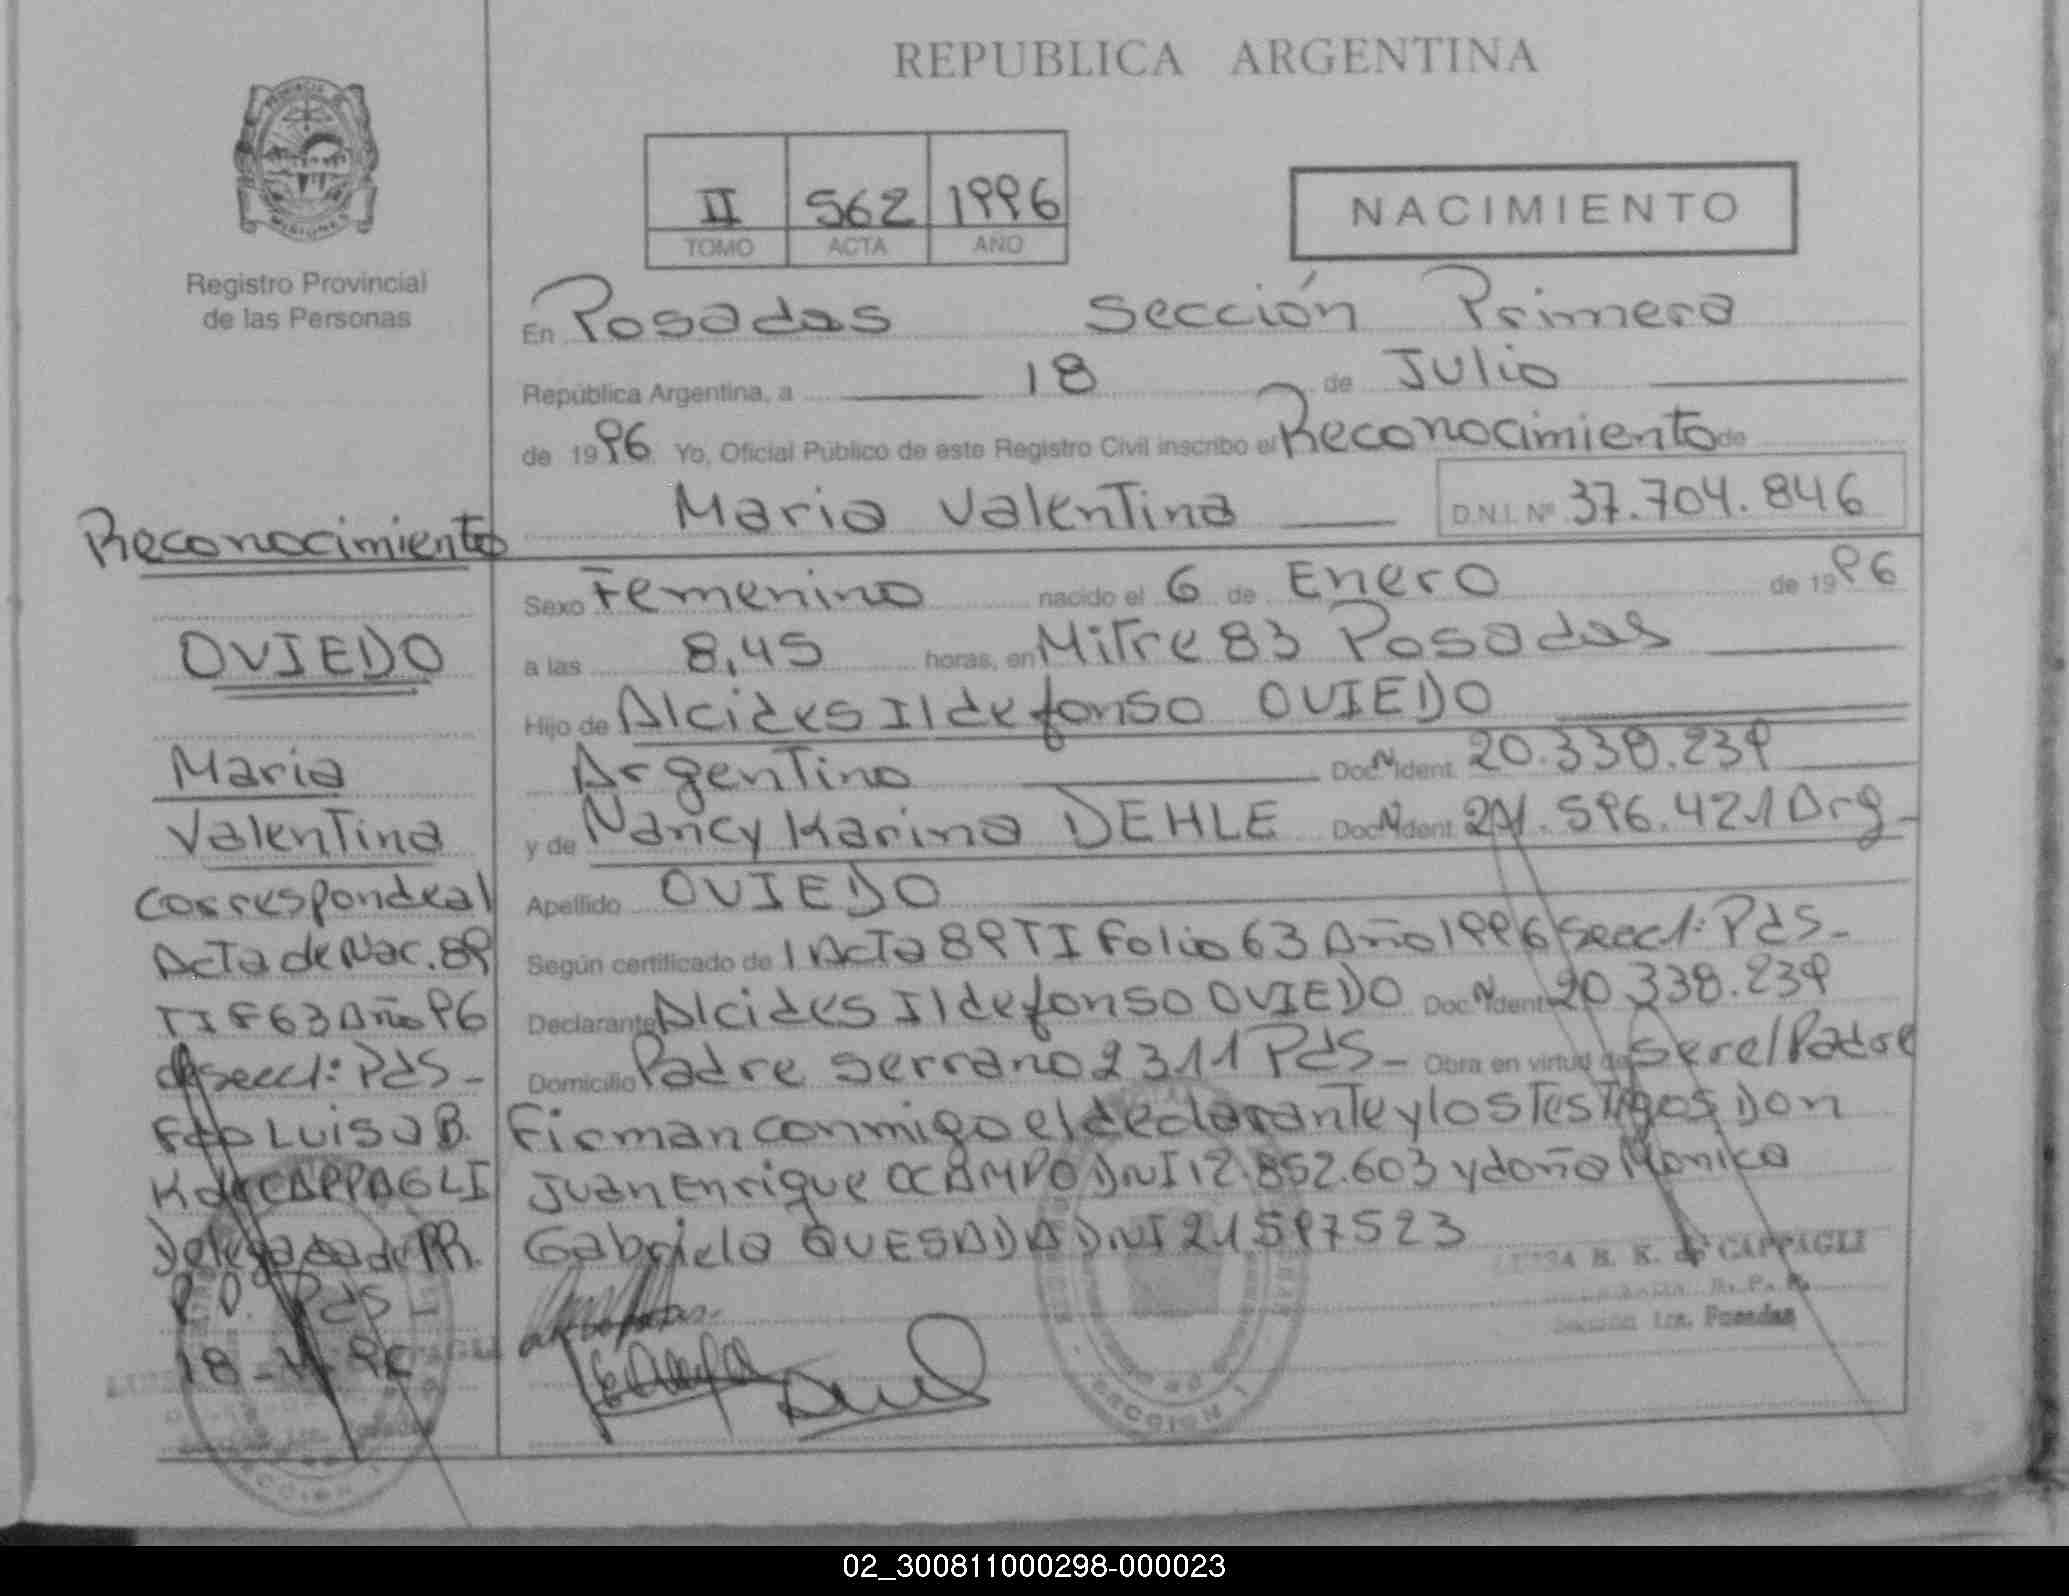 REPUBLICA ARGENTINA
Registro Provincial
de las Personas
II 562 1996
TOMO ACTA AÑO
NACIMIENTO
En Posadas Sección Primera
República Argentina, a 18 de Julio
de 1996 Yo, Oficial Público de este Registro Civil inscribo el Reconocimiento de
Maria Valentina D.N.I. Nº 37.704.846
Sexo Femenino nacido el 6 de Enero de 1996
a las 8,45 horas, en Mitre 83 Posadas
Hijo de Alcides Ildefonso OVIEDO
Argentino Doc. N Ident. 20.338.239
y de Nancy Karina DEHLE Doc. N Ident. 21.596.421 Arg-
Apellido OVIEDO
Según certificado de 1 Acta 89 TI Folio 63 Año 1996 Secc 1: Pds-
Declarante Alcides Ildefonso OVIEDO Doc. N Ident. 20.338.239
Domicilio Padre Serrano 2311 Pds- Obra en virtud de Ser el Padre
Firman conmigo el declarante y los Testigos Don
Juan Enrique OCAMPO DNI 12.852.603 y doña Monica
Gabriela QUESADA DNI 21597523
Reconocimiento
OVIEDO
Maria
Valentina
Corresponde al
Acta de Nac. 89
TI F 63 Año 96
Secc 1: Pds-
Fdo Luisa B.
K de CAPPAGLI
Delegada de RR.
PP. Pds
18
B. K. de CAPPAGLI
R. P. P.
Sección 1ra. Posadas
SECCION 1
02_300811000298-000023